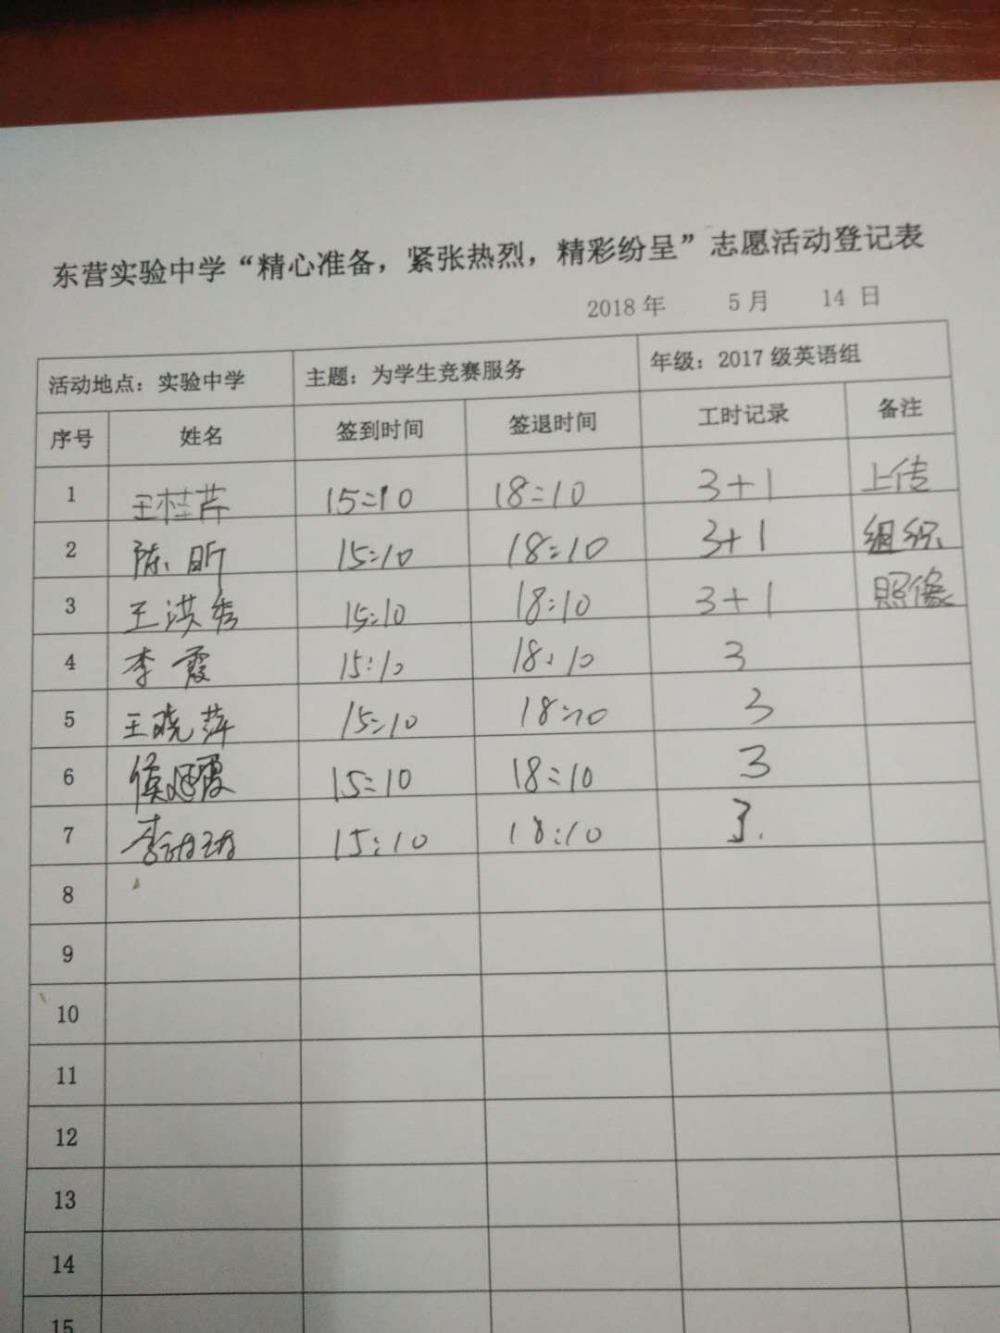 东营实验中学“精心准备，紧张热烈，精彩纷呈”志愿活动登记表
2018 年 5 月 14 日
活动地点：实验中学 主题：为学生竞赛服务 年级：2017 级英语组
序号 姓名 签到时间 签退时间 工时记录 备注
1 王桂芹 15:10 18:10 3+1 上传
2 陈昕 15:10 18:10 3+1 组织
3 王洪秀 15:10 18:10 3+1 照像
4 李霞 15:10 18:10 3
5 王晓萍 15:10 18:10 3
6 侯延霞 15:10 18:10 3
7 李 15:10 18:10 3.
8
9
10
11
12
13
14
15